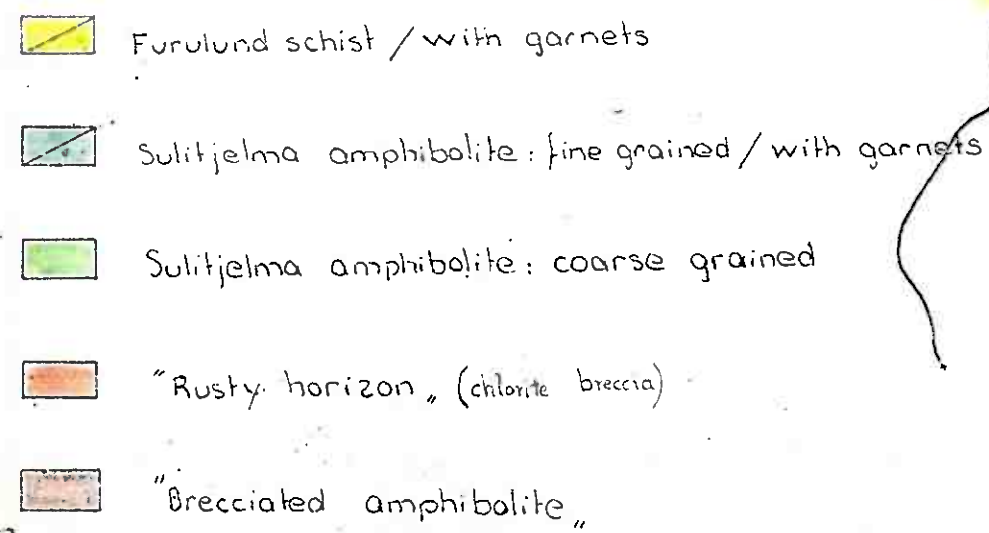 Furulund schist / with garnets
Sulitjelma amphibolite: fine grained / with garnets
Sulitjelma amphibolite: coarse grained
"Rusty horizon„ (chlorite breccia)
"Brecciated amphibolite„